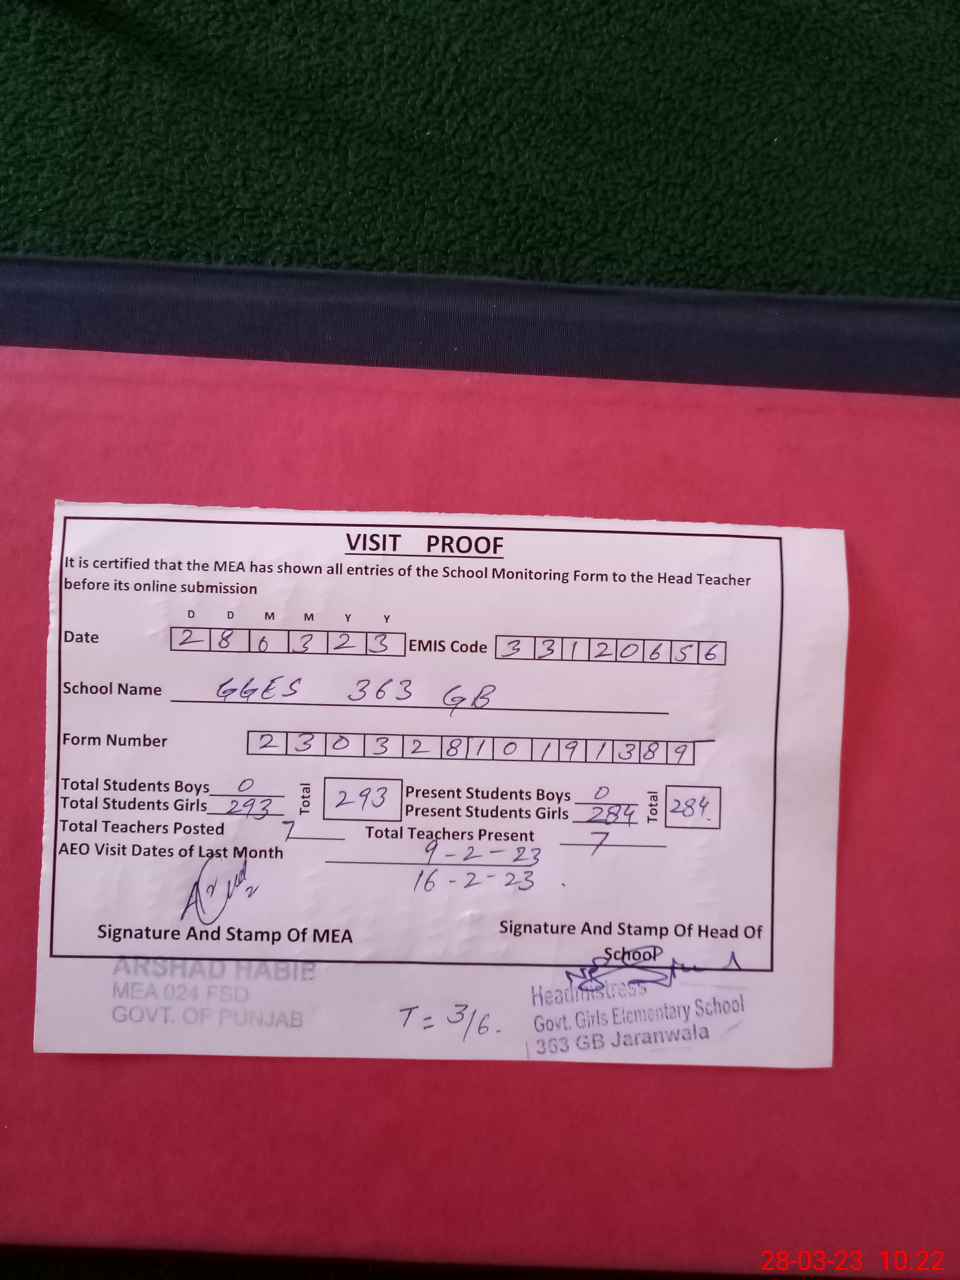 VISIT PROOF
It is certified that the MEA has shown all entries of the School Monitoring Form to the Head Teacher
before its online submission
D D M M Y Y
Date 2 8 0 3 2 3 EMIS Code 3 3 1 2 0 6 5 6
School Name GGES 363 GB
Form Number 2 3 0 3 2 8 1 0 1 9 1 3 8 9
Total Students Boys 0 Total 293 Present Students Boys 0 Total 284
Total Students Girls 293 Present Students Girls 284
Total Teachers Posted 7 Total Teachers Present 7
AEO Visit Dates of Last Month 9-2-23
16-2-23
Signature And Stamp Of MEA Signature And Stamp Of Head Of
School
ARSHAD HABIB
MEA 024 FSD
GOVT. OF PUNJAB
T = 3/6.
Headmistress
Govt. Girls Elementary School
363 GB Jaranwala
28-03-23 10:22